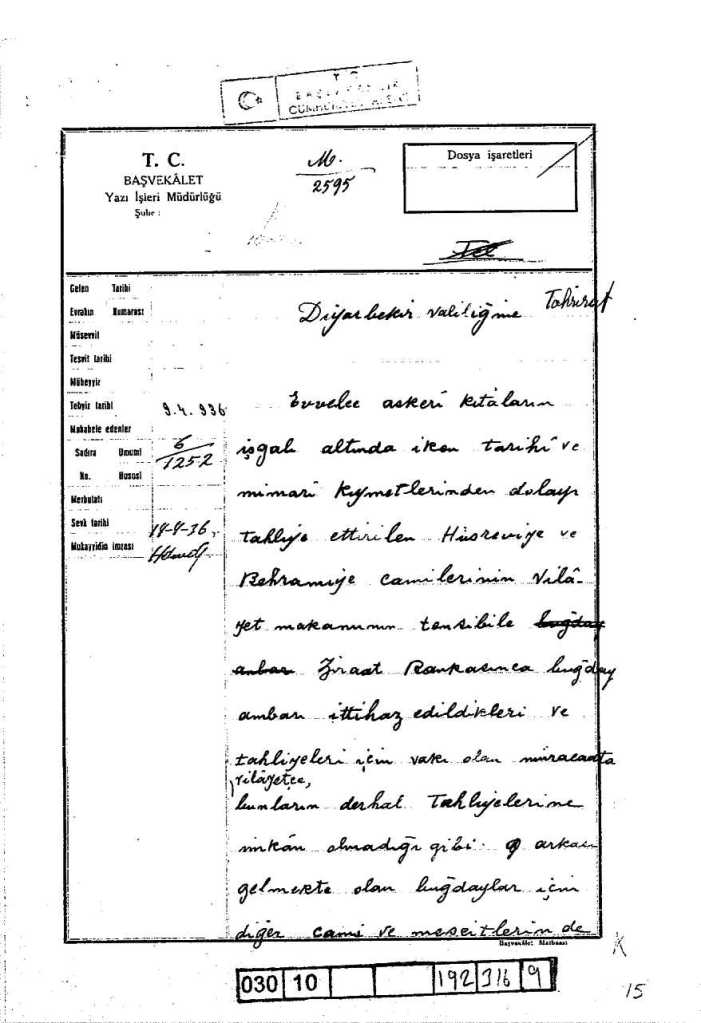 T. C.
BAŞVEKÂLET
Yazı İşleri Müdürlüğü
Şube :
M.
2595
Dosya işaretleri
Tel
Gelen Tarihi
Evrakın Numarası
Müsevvit
Tesvit tarihi
Mübeyyiz
Tebyiz tarihi 9.4.936
Mukabele edenler
Sadıra Umumî 6
No. Hususî 1252
Merbutatı
Sevk tarihi 14-4-36
Mukayyidin imzası
Diyarbekir valiliğine Tahrirat
Evvelce askerî kıtaların
işgalı altında iken tarihî ve
mimarî kıymetlerinden dolayı
tahliye ettirilen Hüsreviye ve
Behramiye camilerinin Vilâ-
yet makamının tensibile buğday
anbarı Ziraat Bankasınca buğday
ambarı ittihaz edildikleri ve
tahliyeleri için vakı olan müracaatta
vilâyetçe,
bunların derhal Tahliyelerine
imkân olmadığı gibi arkası
gelmekte olan buğdaylar için
diğer cami ve mescitlerin de
Başvekâlet Matbaası
030 10 192 316 9
K
15